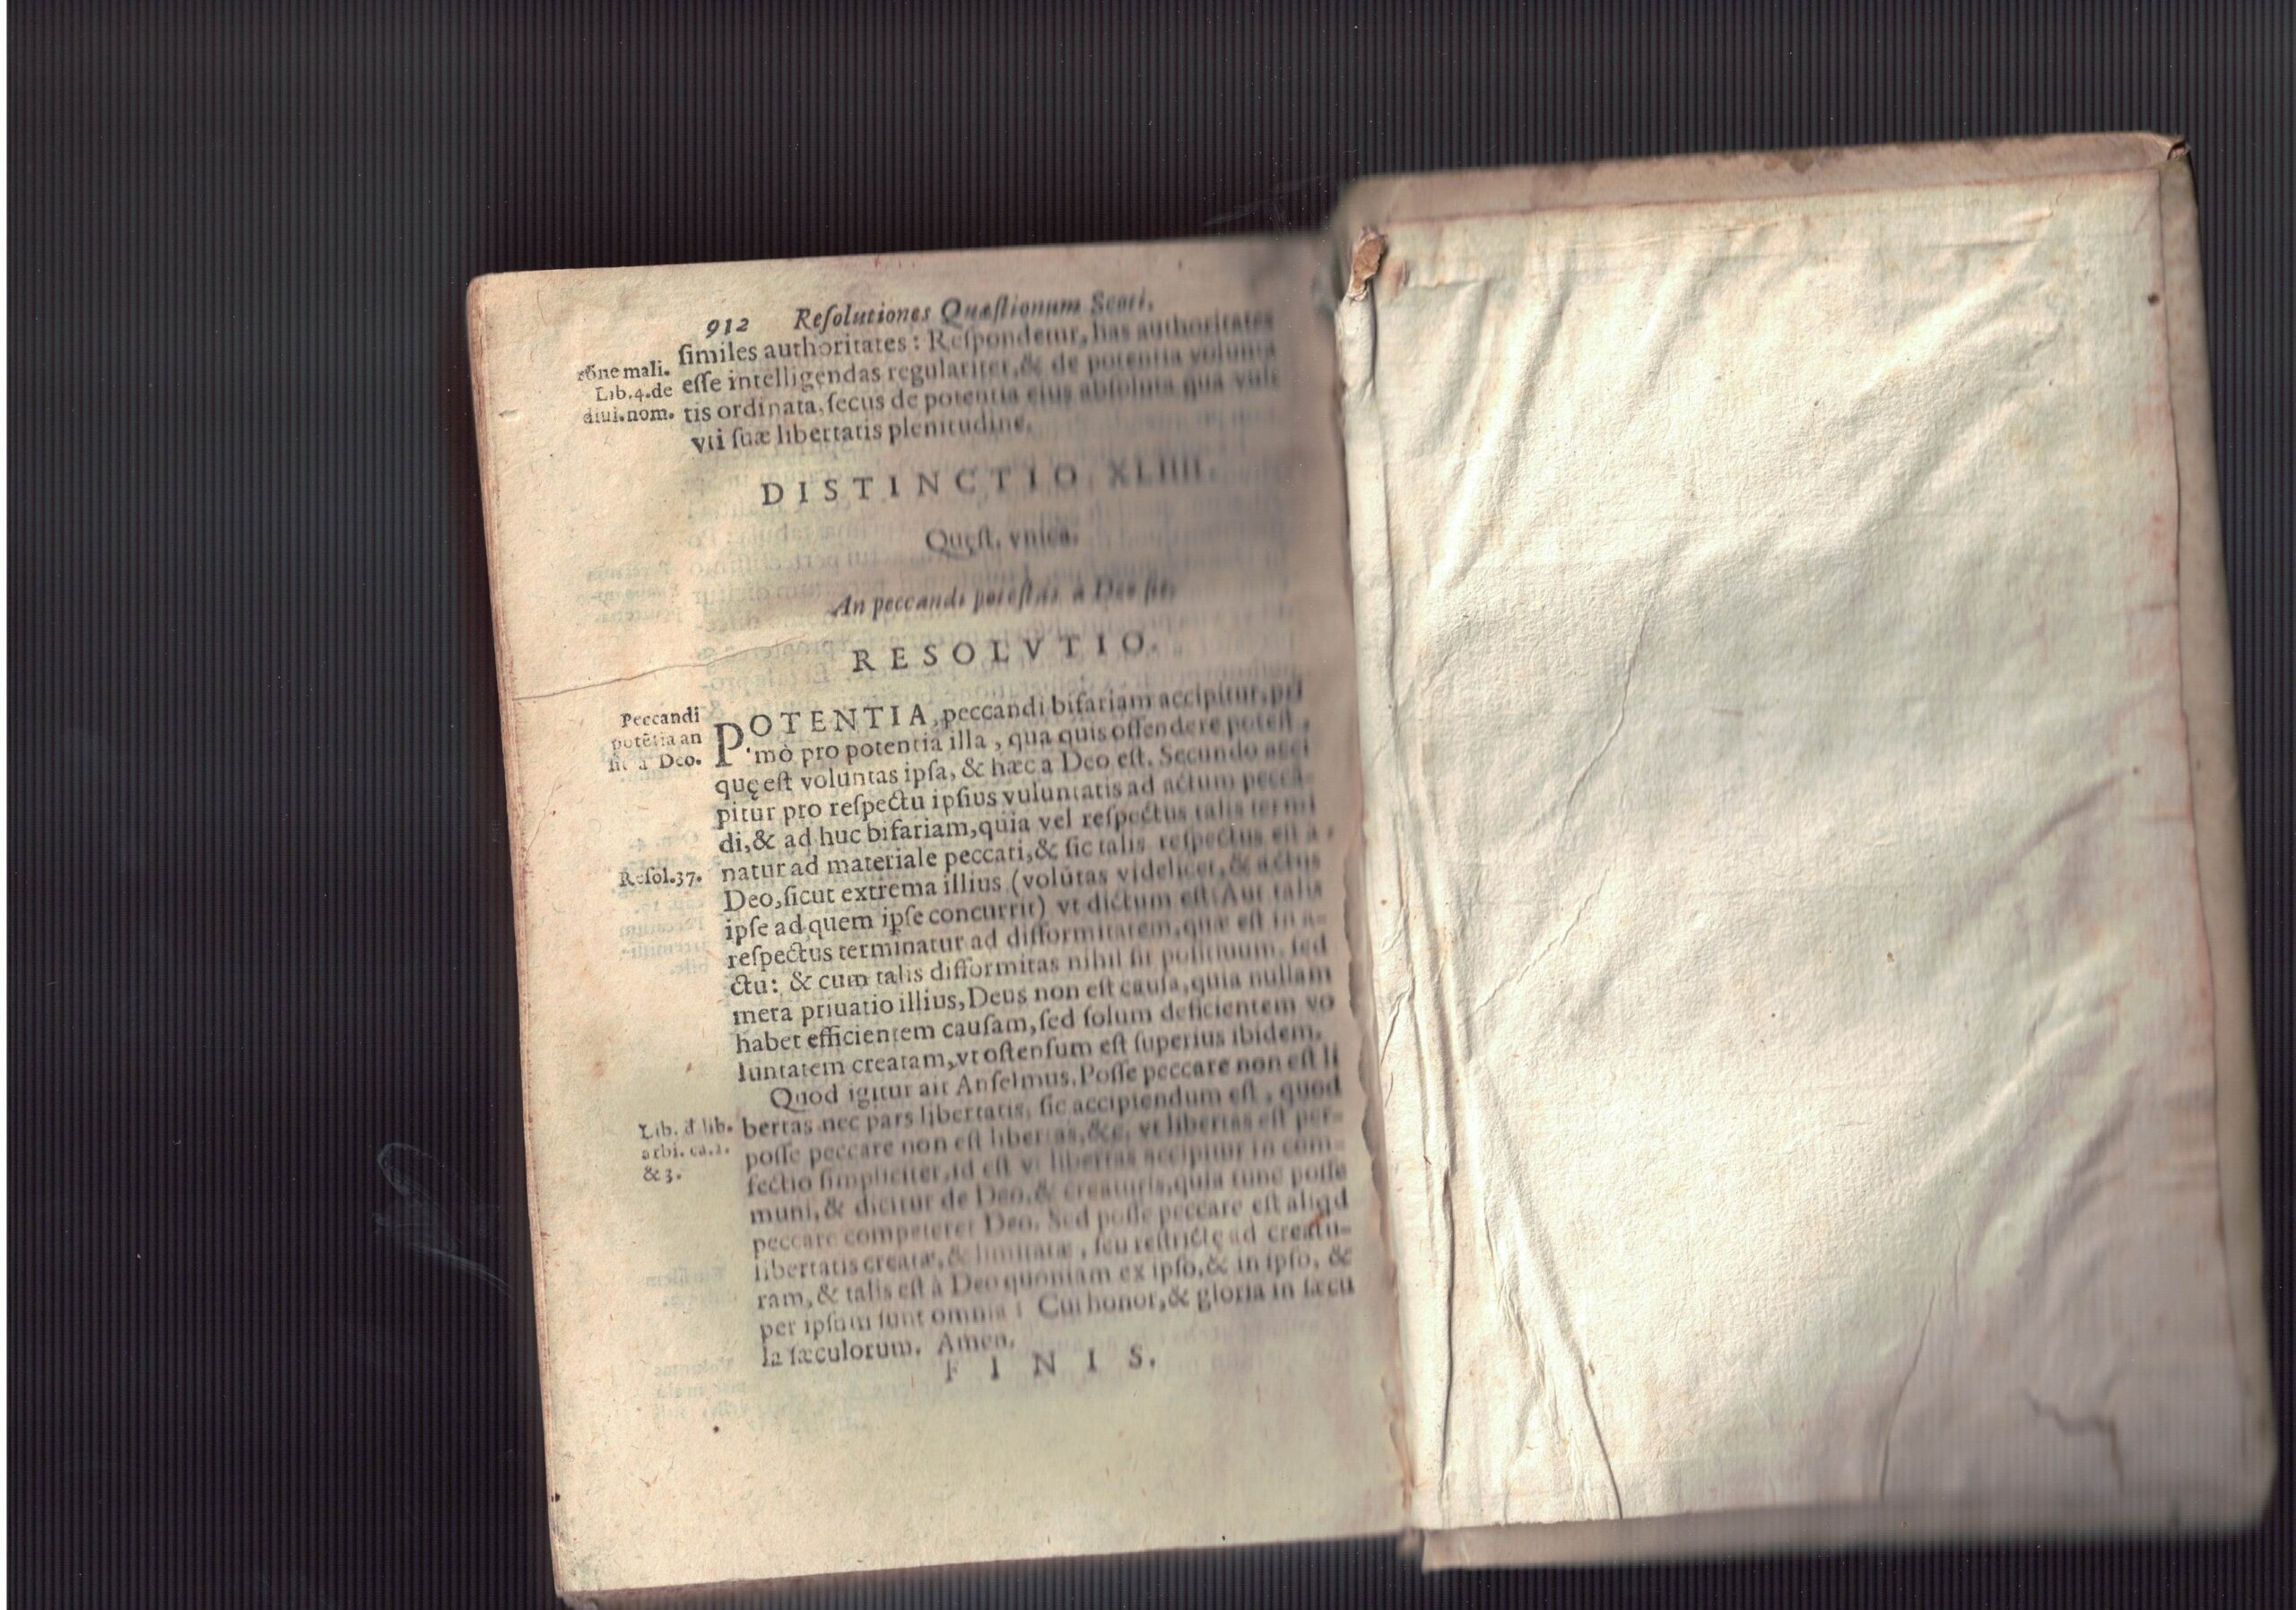 912 Reſolutiones Quæſtionum Scoti.
ſimiles authoritates : Reſpondetur, has authoritates
rōne mali.
Lib.4.de
diui.nom.
eſſe intelligendas regulariter,& de potentia volunta
tis ordinata,ſecus de potentia eius abſoluta qua vult
vti ſuæ libertatis plenitudine.
DISTINCTIO XLIIII.
Quęſt. vnica.
An peccandi poteſtas à Deo ſit.
RESOLVTIO.
Peccandi
potētia an
ſit à Deo.
POTENTIA,peccandi bifariam accipitur,pri
mò pro potentia illa , qua quis offendere poteſt ,
quę eſt voluntas ipſa, & hæc a Deo eſt. Secundo acci
pitur pro reſpectu ipſius vuluntatis ad actum peccā-
di,& ad huc bifariam,quia vel reſpectus talis termi
Reſol.37.
natur ad materiale peccati,& ſic talis reſpectus eſt à
Deo,ſicut extrema illius (volūtas videlicet,& actus
ipſe ad quem ipſe concurrit) vt dictum eſt: Aut talis
reſpectus terminatur ad difformitatem,quæ eſt in a-
ctu: & cum talis difformitas nihil ſit poſitiuum, ſed
mera priuatio illius,Deus non eſt cauſa,quia nullam
habet efficientem cauſam,ſed ſolum deficientem vo
luntatem creatam,vt oſtenſum eſt ſuperius ibidem.
Quod igitur ait Anſelmus,Poſſe peccare non eſt li
Lib. đ lib.
arbi. ca.1.
& 3.
bertas nec pars libertatis, ſic accipiendum eſt , quod
poſſe peccare non eſt libertas,&c. vt libertas eſt per-
fectio ſimpliciter,id eſt vt libertas accipitur in com-
muni,& dicitur de Deo,& creaturis,quia tunc poſſe
peccare competeret Deo. Sed poſſe peccare eſt aliqd
libertatis creatæ,& limitatæ , ſeu reſtrictę ad creatu-
ram,& talis eſt à Deo quoniam ex ipſo,& in ipſo, &
per ipſum ſunt omnia : Cui honor,& gloria in ſæcu
la ſæculorum. Amen.
FINIS.